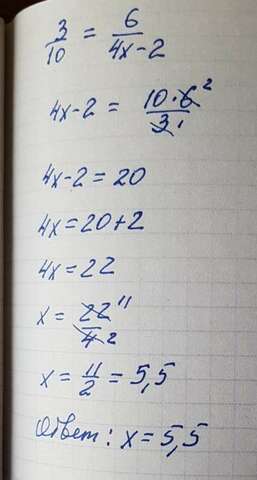 3/10 = 6/4x-2
4x-2 = 10·6 2/3 1
4x-2 = 20
4x = 20+2
4x = 22
x = 22 11/4 2
x = 11/2 = 5,5
Ответ: x = 5,5